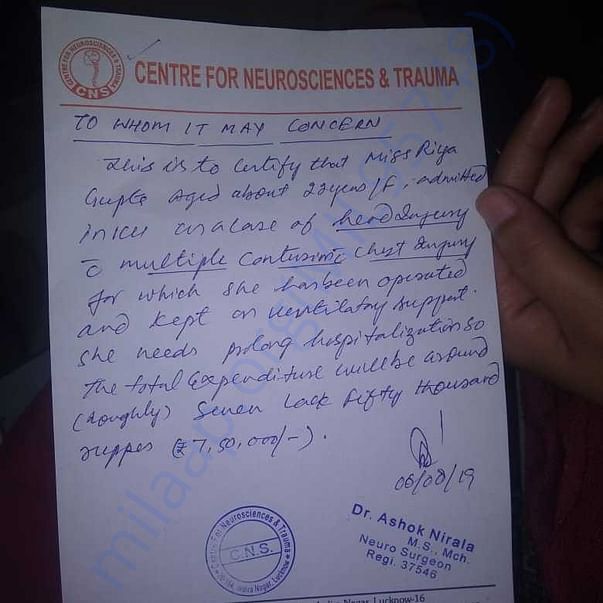 CENTRE FOR NEUROSCIENCES & TRAUMA
CNS
CENTRE FOR NEUROSCIENCES & TRAUMA
TO WHOM IT MAY CONCERN
This is to certify that Miss Riya
Gupta aged about 22 years/F admitted
in ICU as a case of head Injury
c̄ multiple Contusions c̄ chest Injury
for which she has been operated
and kept on ventilatory support.
she needs prolong hospitalization so
the total expenditure will be around
(roughly) Seven Lack fifty thousand
ruppes (₹ 7,50,000/-).
06/08/19
Dr. Ashok Nirala
M.S., Mch.
Neuro Surgeon
Regi. 37546
Centre For Neurosciences & Trauma
C.N.S.
Nagar, Lucknow
Nagar, Lucknow-16
milaap.org